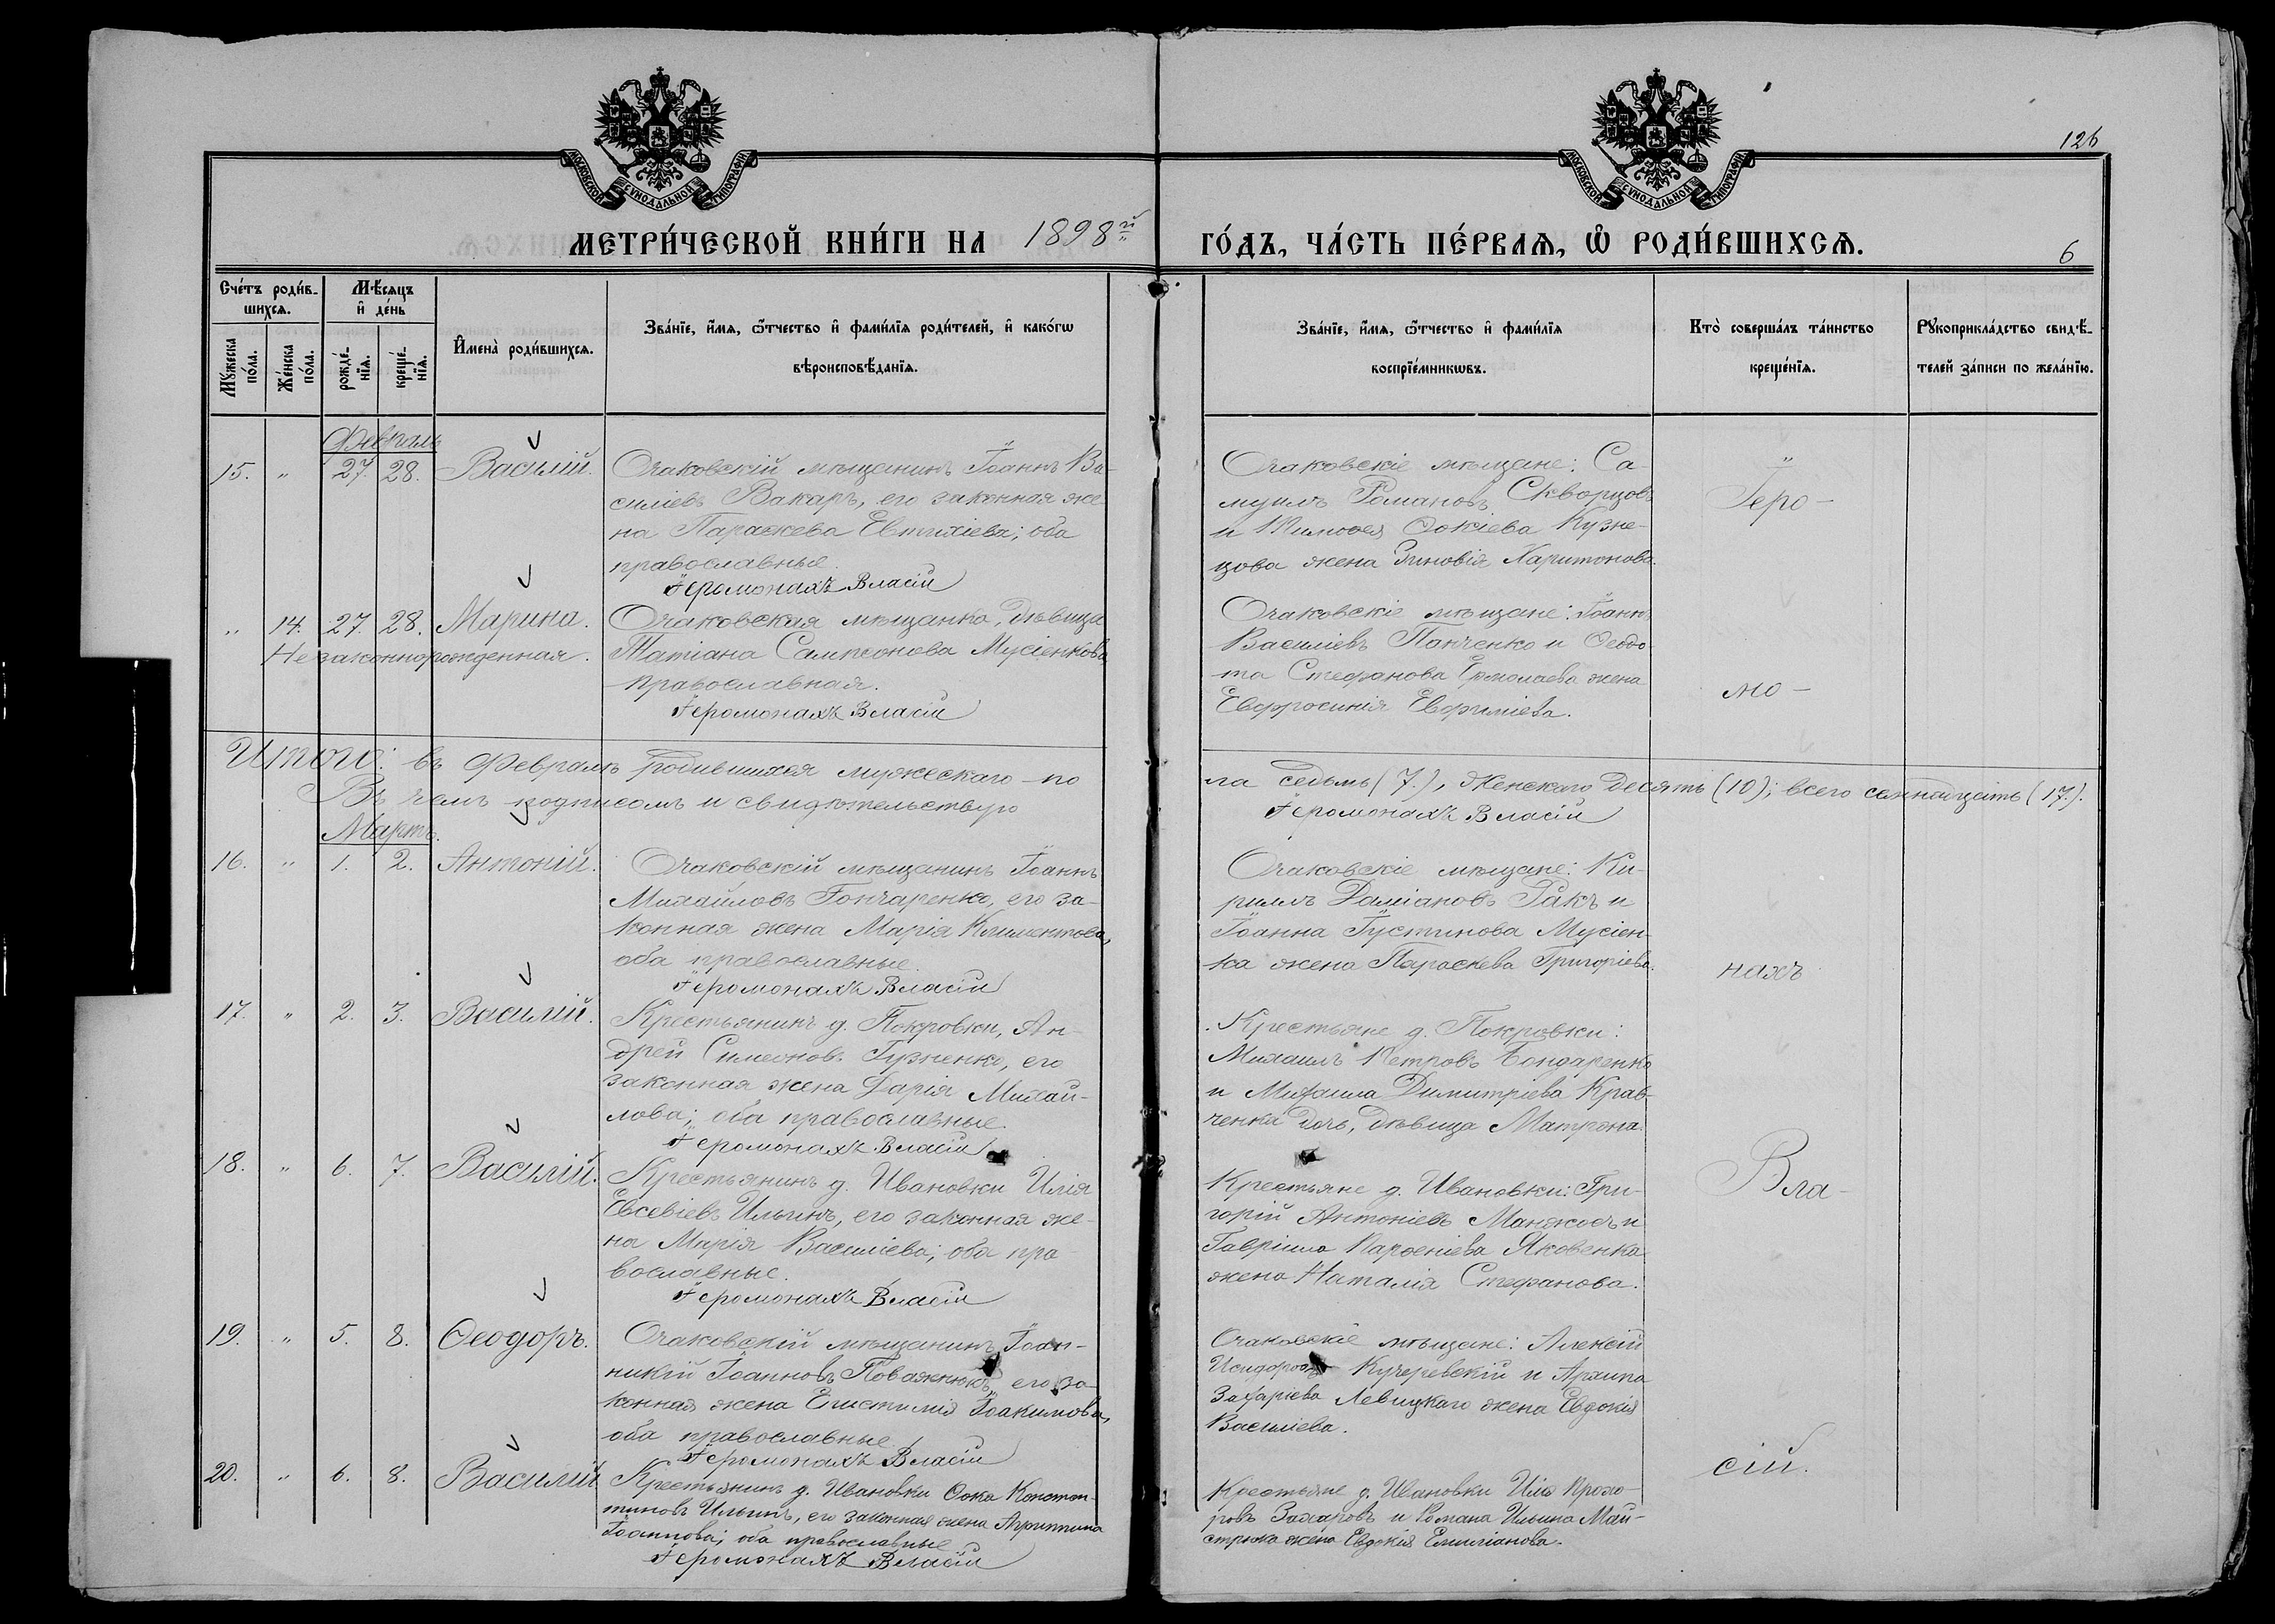 126
МОСКОВСКОЙ СУНОДАЛЬНОЙ ТИПОГРАФІИ
МОСКОВСКОЙ СУНОДАЛЬНОЙ ТИПОГРАФІИ
МЕТРИ́ЧЕСКОЙ КНИ́ГИ НА 1898й ГО́ДЪ, ЧА́СТЬ ПЕ́РВАѦ, Ѽ РОДИ́ВШИХСѦ.
6
Сче́тъ роди́в-
шихсѧ.
Мꙋ́жеска по́ла.
Же́нска по́ла.
Мѣ́сѧцъ
и҆ де́нь
рожде́-нїѧ.
креще́-нїѧ.
И҆мена̀ роди́вшихсѧ.
Зва́нїе, и҆́мѧ, ѻ҆́тчество и҆ фами́лїѧ роди́телей, и҆ како́гѡ
вѣроисповѣ́данїѧ.
Зва́нїе, и҆́мѧ, ѻ҆́тчество и҆ фами́лїѧ
воспрїе́мникѡвъ.
Кто̀ соверша́лъ та́инство
креще́нїѧ.
Рꙋкоприкла́дство свидѣ́-
телей за́писи по жела́нїю.
Февраль
15. " 27. 28. Василій.
Очаковскій мѣщанинъ Іоаннъ Ва-
силіевъ Вакаръ, его законная же-
на Параскева Евтихіева; оба
православные.
Іеромонахъ Власій
Очаковскіе мѣщане: Са-
муилъ Романовъ Скворцовъ
и Тимоѳея Ѳокіева Кузне-
цова жена Зиновія Харитонова.
Іеро-
" 14. 27. 28. Марина.
Незаконнорожденная.
Очаковская мѣщанка, дѣвица
Татіана Сампсонова Мусіенкова
православная.
Іеромонахъ Власій
Очаковскіе мѣщане: Іоаннъ
Василіевъ Панченко и Ѳеодо-
та Стефанова Ермолаева жена
Евфросинія Евфиміева.
мо-
Итого: въ Февралѣ родившихся мужескаго по-
ла седьмь (7.), женскаго десять (10); всего семнадцать (17.).
Въ чемъ подписомъ и свидѣтельствую
Іеромонахъ Власій
Мартъ.
16. " 1. 2. Антоній.
Очаковскій мѣщанинъ Іоаннъ
Михайловъ Гончаренко, его за-
конная жена Марія Климентова,
оба православные.
Іеромонахъ Власій
Очаковскіе мѣщане: Ки-
риллъ Даміановъ Ракъ и
Іоанна Іустинова Мусіен-
ка жена Параскева Григоріева.
нахъ
17. " 2. 3. Василій.
Крестьянинъ д. Покровки, Ан-
дрей Симеоновъ Гузненко, его
законная жена Дарія Михай-
лова; оба православные.
Іеромонахъ Власій
Крестьяне д. Покровки:
Михаилъ Петровъ Бондаренко
и Михаила Димитріева Крав-
ченка дочь, дѣвица Матрона.
18. " 6. 7. Василій.
Крестьянинъ д. Ивановки Илія
Евсевіевъ Ильинъ, его законная же-
на Марія Василіева; оба пра
вославные.
Іеромонахъ Власій
Крестьяне д. Ивановки: Гри-
горій Антоніевъ Манжосъ и
Гавріила Парѳеніева Яковенка
жена Наталія Стефанова.
Вла-
19. " 5. 8. Ѳеодоръ.
Очаковскій мѣщанинъ Іоан-
никій Іоанновъ Поважнюкъ, его за-
конная жена Епистимія Іоакимова,
оба православные
Іеромонахъ Власій
Очаковскіе мѣщане: Алексій
Исидоровъ Кучеревскій и Архипа
Захаріева Левицкаго жена Евдокія
Василіева.
20. " 6. 8. Василій
Крестьянинъ д. Ивановки Ѳока Констан-
тиновъ Ильинъ, его законная жена Агриппина
Іоаннова; оба православные
Іеромонахъ Власій
Крестьяне д. Ивановки Илія Прохо-
ровъ Захаровъ и Романа Ильина Май-
стрюка жена Евдокія Емиліанова.
сій.